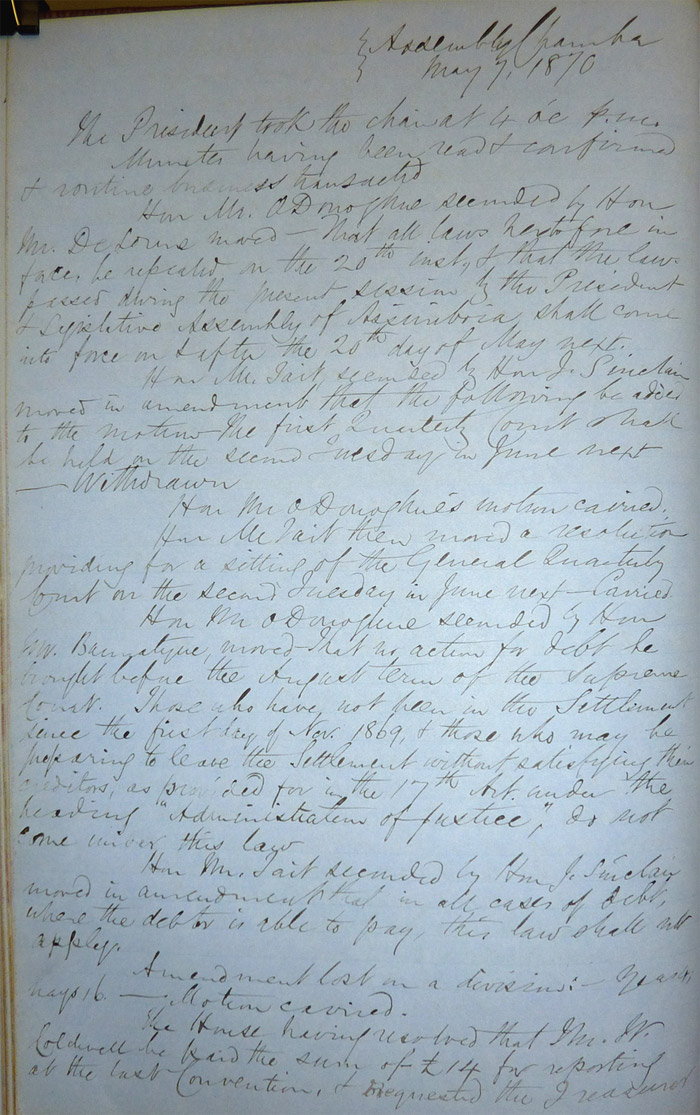 Assembly Chamber
May 7, 1870
The President took the chair at 4 o'c p.m.
Minutes having been read & confirmed
& routine business transacted
Hon Mr. O'Donoghue seconded by Hon
Mr. DeLorme moved — that all laws heretofore in
force, be repealed, on the 20th inst., & that the laws
passed during the present session by the President
& Legislative Assembly of Assiniboia shall come
into force on & after the 20th day of May next.
Hon Mr. Tait, seconded by Hon J. Sinclair
moved in amendment that the following be added
to the motion The first Quarterly Court shall
be held on the second Tuesday in June next
— Withdrawn
Hon Mr O'Donoghue's motion carried.
Hon Mr Tait then moved a resolution
providing for a sitting of the General Quarterly
Court on the second Tuesday in June next — Carried
Hon Mr O'Donoghue seconded by Hon
Mr. Bannatyne, moved That no action for debt be
brought before the August term of the Supreme
Court. Those who have not been in the Settlement
since the first day of Nov. 1869, & those who may be
preparing to leave the Settlement without satisfying their
creditors, as provided for in the 17th Art. under the
heading "Administration of Justice", do not
come under this law
Hon Mr. Tait seconded by Hon J. Sinclair
moved in amendment that in all cases of debt,
where the debtor is able to pay, this law shall not
apply.
Amendment lost on a division: — Yeas 4,
nays 16. — Motion carried.
The House having resolved that Mr. W.
Coldwell be paid the sum of £14 for reporting
at the last Convention, & requested the Treasurer